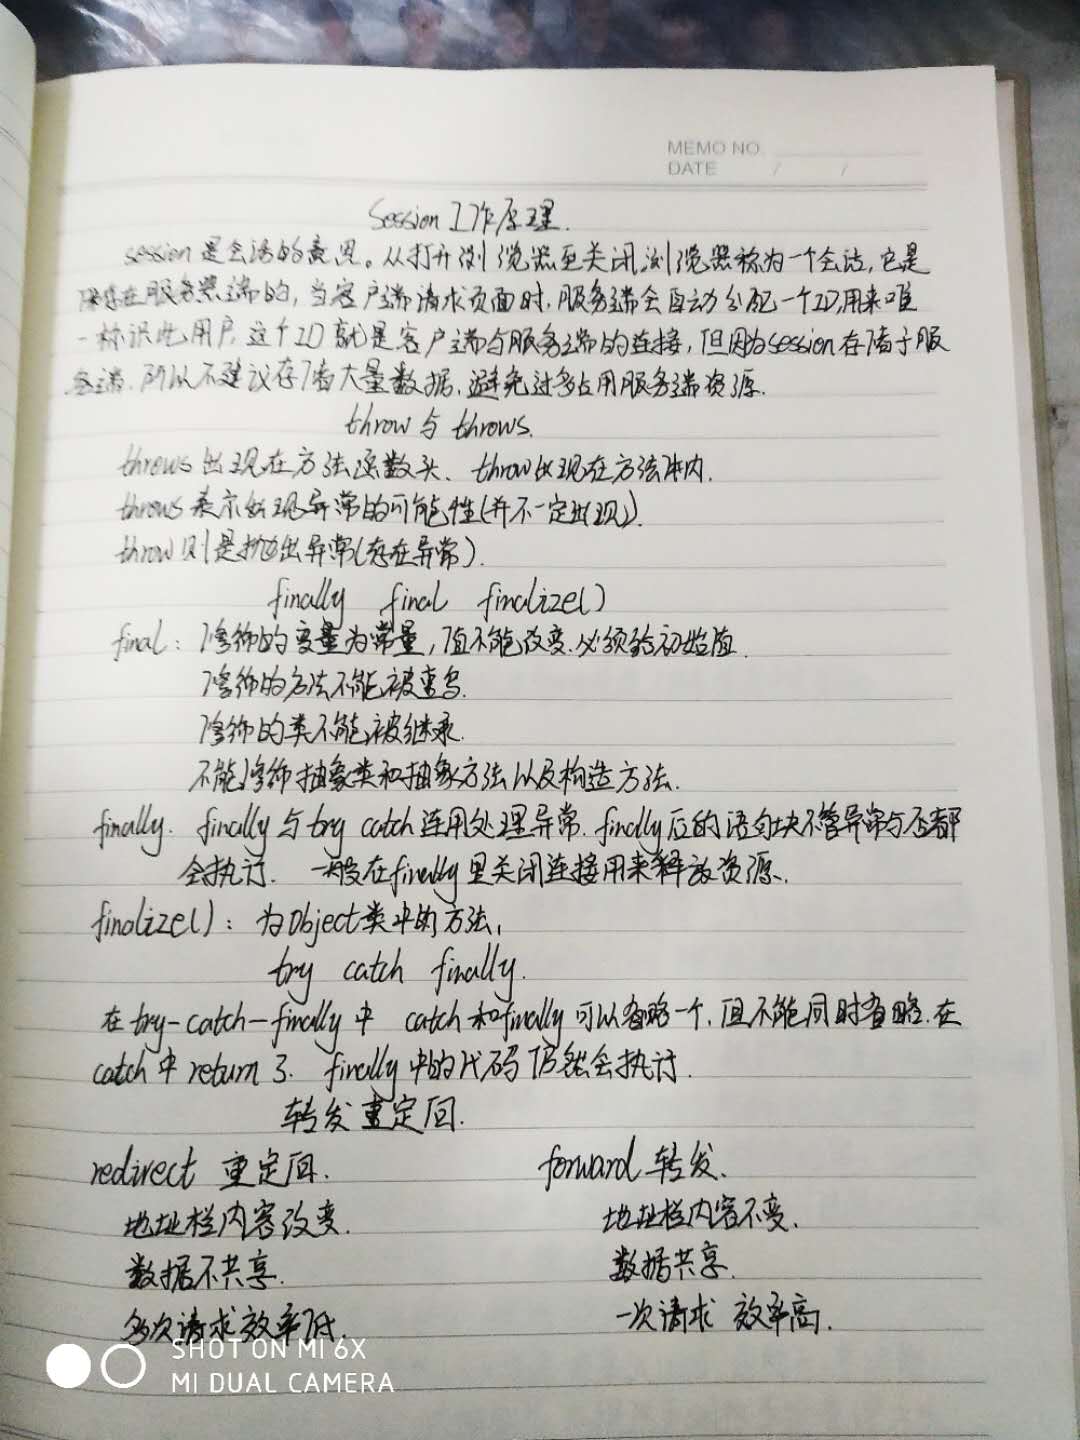 MEMO NO.
DATE / /
Session工作原理.
session是会话的意思。从打开浏览器至关闭浏览器称为一个会话,它是
保存在服务器端的,当客户端请求页面时,服务端会自动分配一个ID,用来唯
一标识此用户,这个ID就是客户端与服务端的连接,但因为session存储于服
务端.所以不建议存储大量数据.避免过多占用服务端资源.
throw与throws.
throws出现在方法函数头、throw出现在方法体内.
throws表示出现异常的可能性(并不一定出现).
throw则是抛出异常(存在异常).
finally final finalize()
final: 修饰的变量为常量,值不能改变.必须给初始值.
修饰的方法不能被重写.
修饰的类不能被继承.
不能修饰抽象类和抽象方法以及构造方法.
finally. finally与try catch连用处理异常.finally后的语句块不管异常与否都
会执行. 一般在finally里关闭连接用来释放资源.
finalize(): 为Object类中的方法,
try catch finally.
在try-catch-finally中 catch和finally可以省略一个.但不能同时省略.在
catch中return了. finally中的代码仍然会执行.
转发重定向.
redirect 重定向. forward转发.
地址栏内容改变. 地址栏内容不变.
数据不共享. 数据共享.
多次请求效率低. 一次请求 效率高.
SHOT ON MI 6X
MI DUAL CAMERA